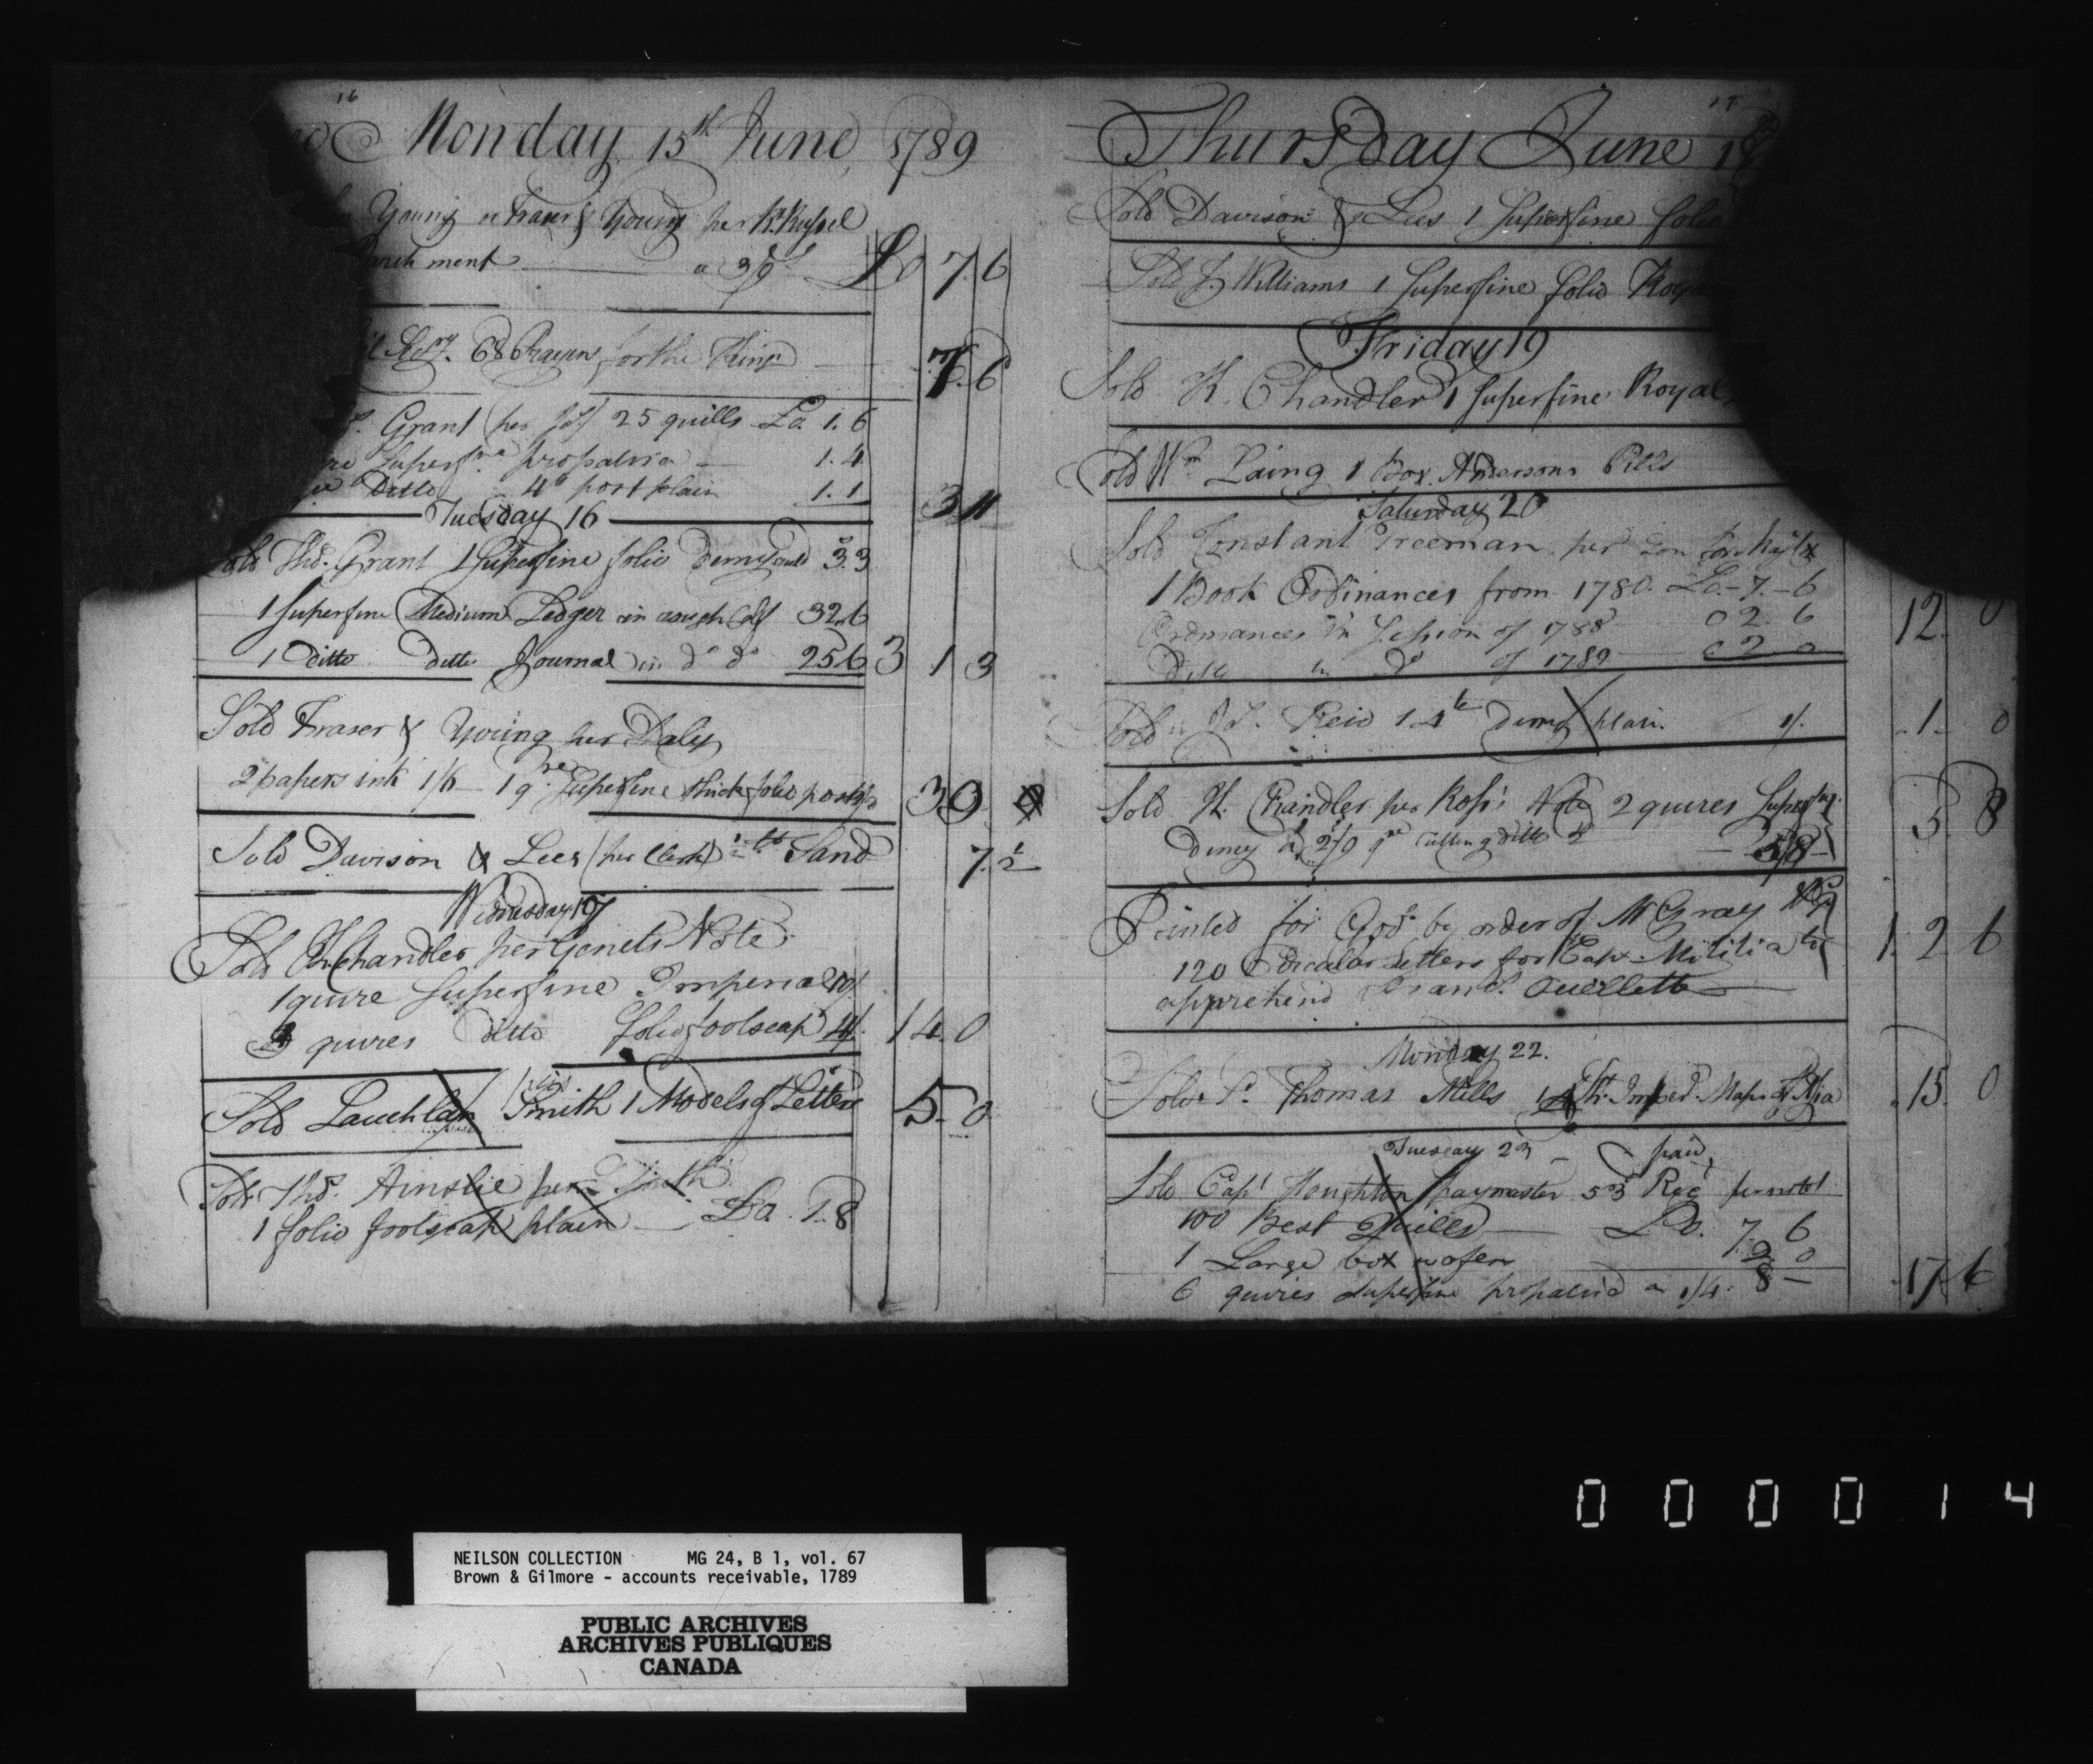 16
Monday 15th June 1789
Young or Fraser & Young per
archment a 3/9 £0 7 6
for the King 7 6
Grant per 25 quills £0. 1. 6
Superfne propatria 1. 4
Ditto 4to post plain 1. 1 3 11
Tuesday 16
Sold Thos. Grant 1 Superfine folio demy 3.3
1 Superfine Medium Ledger in rough Calf 32.6
1 Ditto Ditto Journal in do do 25.6 3 1 3
Sold Fraser & Young per Daly
2 papers ink 1/6 1 qre Superfine thick folio post 3 0
Sold Davison & Lees (per Clerk) Sand 7 ½
Wednesday 17
Sold K. Chandler per Genets Note
1 quire Superfine Imperial 10/
quires ditto folio foolscap 4/ 14. 0
Sold Lauchlan Smith 1 Models of Letters 5. 0
Sold Thos. Ainslie per Smith
1 folio foolscap plain £0. 1.8
17
Thursday June 18
Sold Davison & Lees 1 Superfine folio
Sold J. Williams 1 Superfine folio Roya
Friday 19
Sold K. Chandler 1 Superfine Royal
Sold Wm Laing 1 Box Andersons Pills
Saturday 20
Sold Constant Freeman per
1 Book Ordinances from 1780. £0.-7.-6
Ordinances in Session of 1788 0 2. 6 12. 0
Ditto in Do of 1789 0 2 0
Sold Reid 1 4to demy plain 1/. 1. 0
Sold K. Chandler per Ross's Note 2 quires Superfne
Demy a 2/9 qre cutting ditto 2 5/8 5 8
Printed for Govt by order of Mr Gray
120 Circular Letters for Capt Militia to 1. 2 6
apprehend Frans. Ouellette
Monday 22.
Sold Sr Thomas Mills 1 15. 0
Tuesday 23 paid
Sold Capt Houghton paymaster 53 Regt per note
100 Best Quills £0. 7. 6
1 Large box wafers 2 0
6 quires superfine propatria a 1/4. 8 - 17 6
000014
NEILSON COLLECTION MG 24, B 1, vol. 67
Brown & Gilmore - accounts receivable, 1789
PUBLIC ARCHIVES
ARCHIVES PUBLIQUES
CANADA